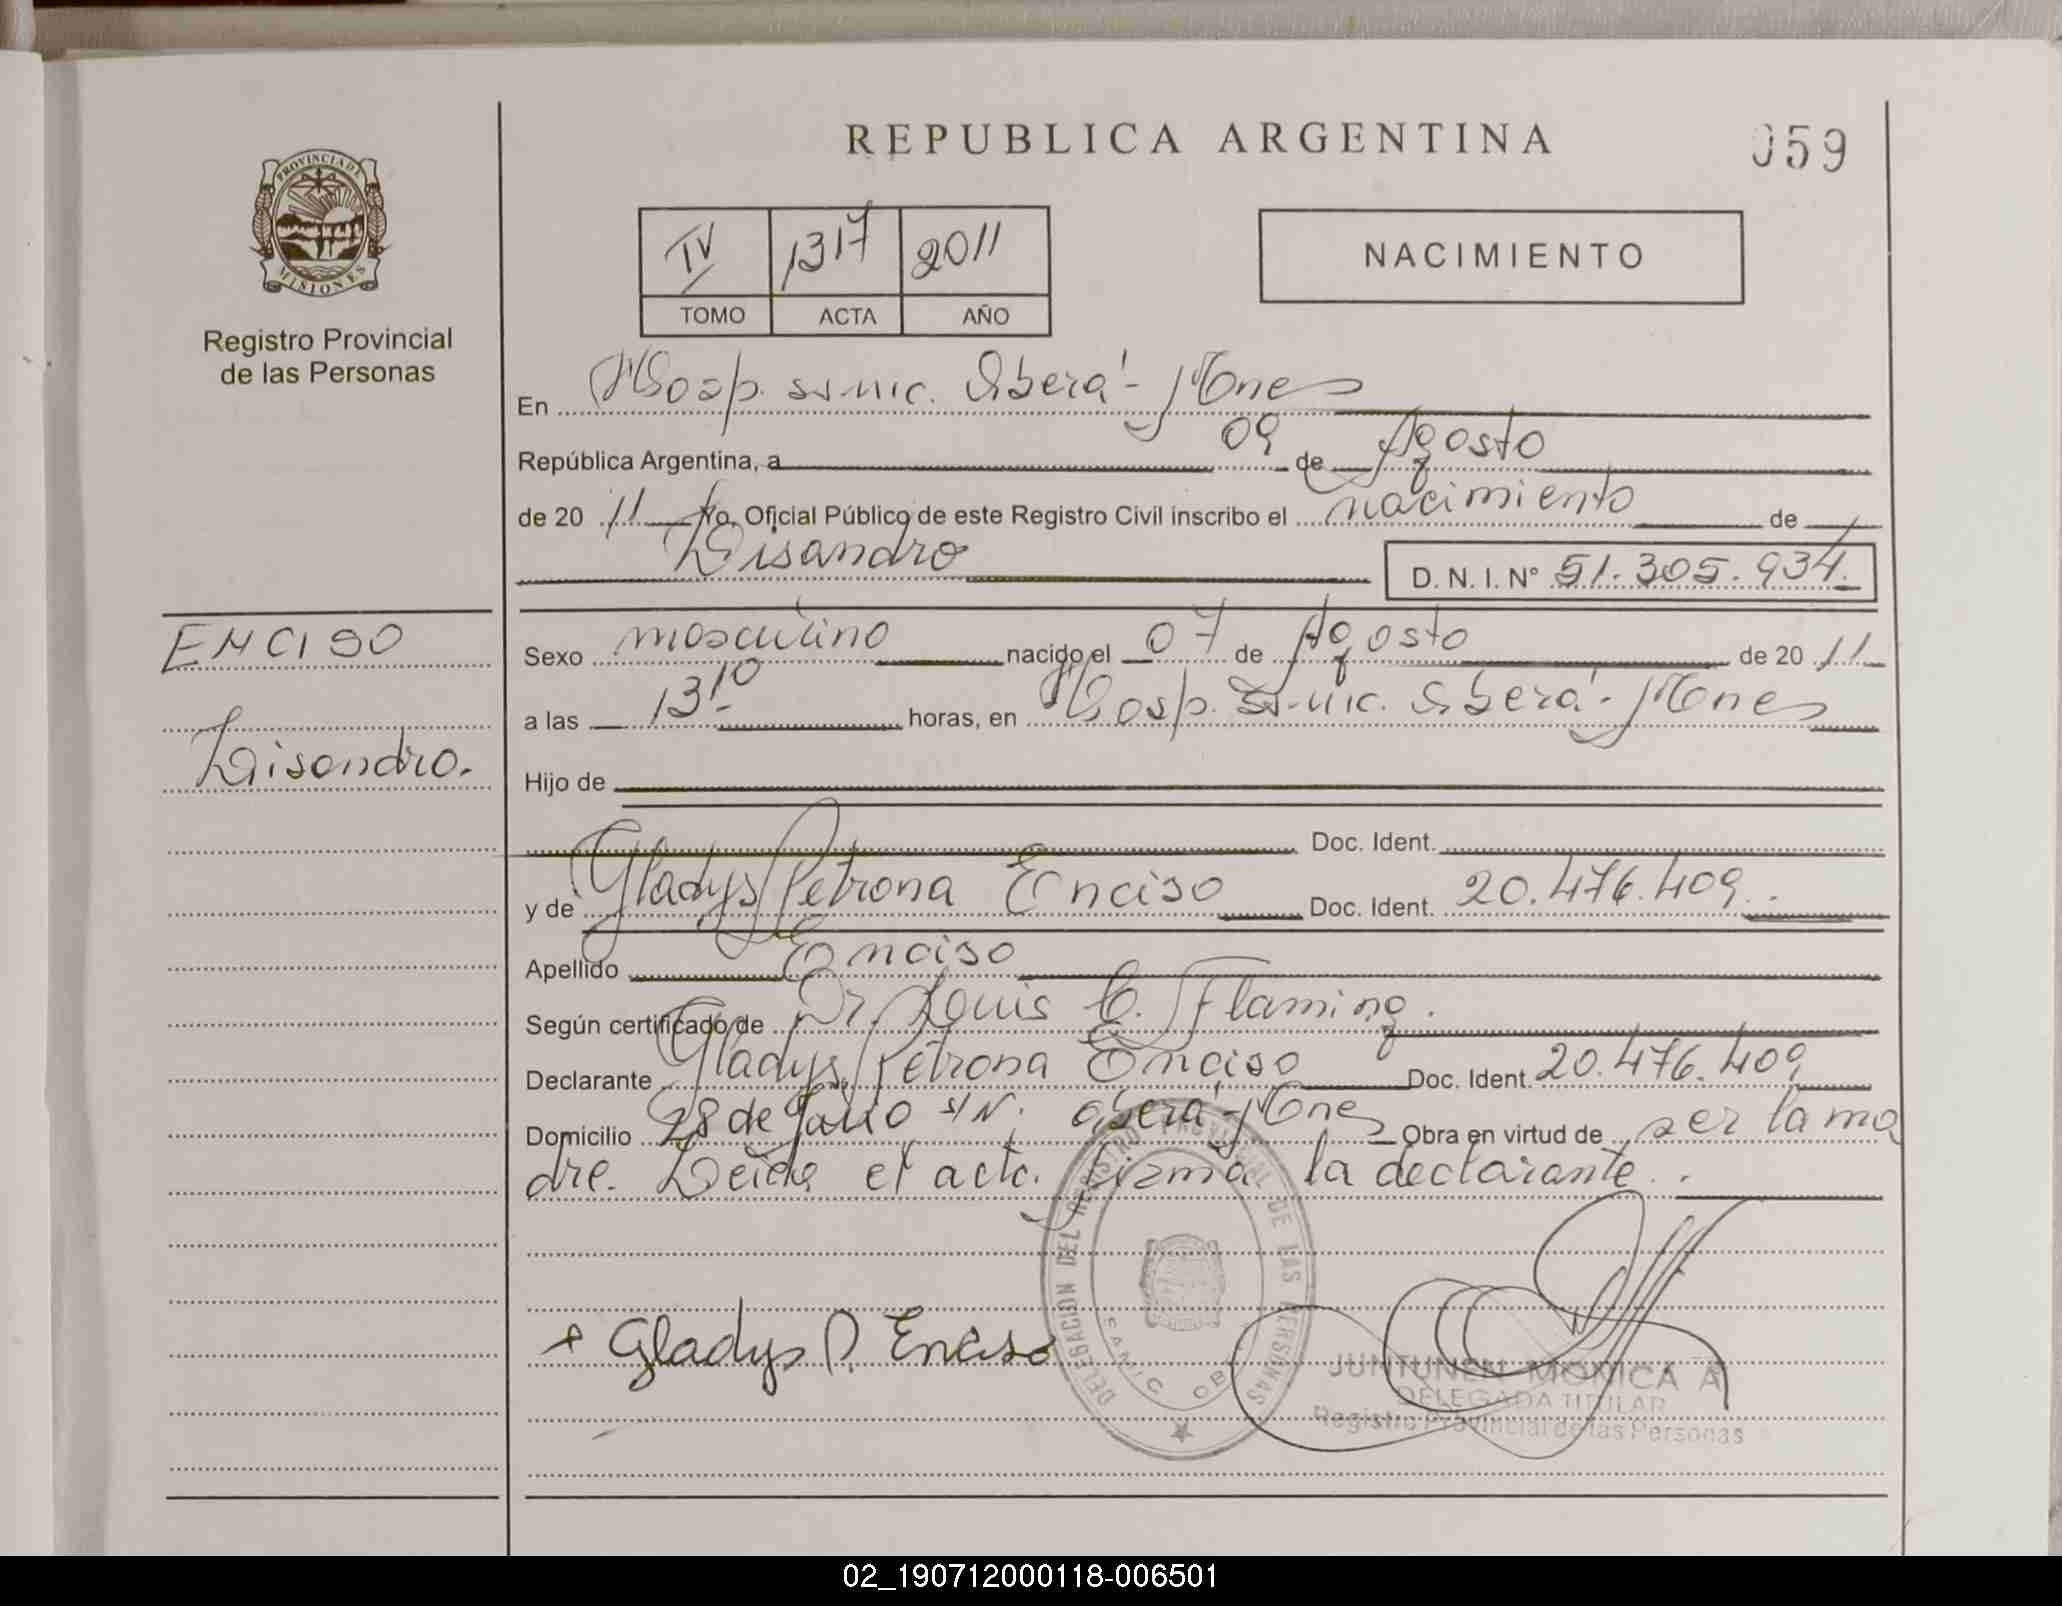 REPUBLICA ARGENTINA
059
PROVINCIA DE MISIONES
Registro Provincial
de las Personas
IV 1317 2011
TOMO ACTA AÑO
NACIMIENTO
En Hosp. Samic. Oberá - Mnes
República Argentina, a 09 de Agosto
de 20 11 Yo, Oficial Público de este Registro Civil inscribo el nacimiento de
Lisandro D. N. I. Nº 51.305.934.
ENCISO
Lisandro.
Sexo masculino nacido el 07 de Agosto de 20 11
a las 13 10 horas, en Hosp. Samic. Oberá - Mnes
Hijo de
Doc. Ident.
y de Gladys Petrona Enciso Doc. Ident. 20.476.409.
Apellido Enciso
Según certificado de Dr. Louis C. Flaming.
Declarante Gladys Petrona Enciso Doc. Ident. 20.476.409
Domicilio 28 de Julio s/N. Oberá - Mnes Obra en virtud de ser la ma
dre. Leída el acta. firma la declarante.
DELEGACION DEL REGISTRO PROVINCIAL DE LAS PERSONAS
SAMIC OB
Gladys P. Enciso
JUNTUNEN MONICA A
DELEGADA TITULAR
Registro Provincial de las Personas
02_190712000118-006501